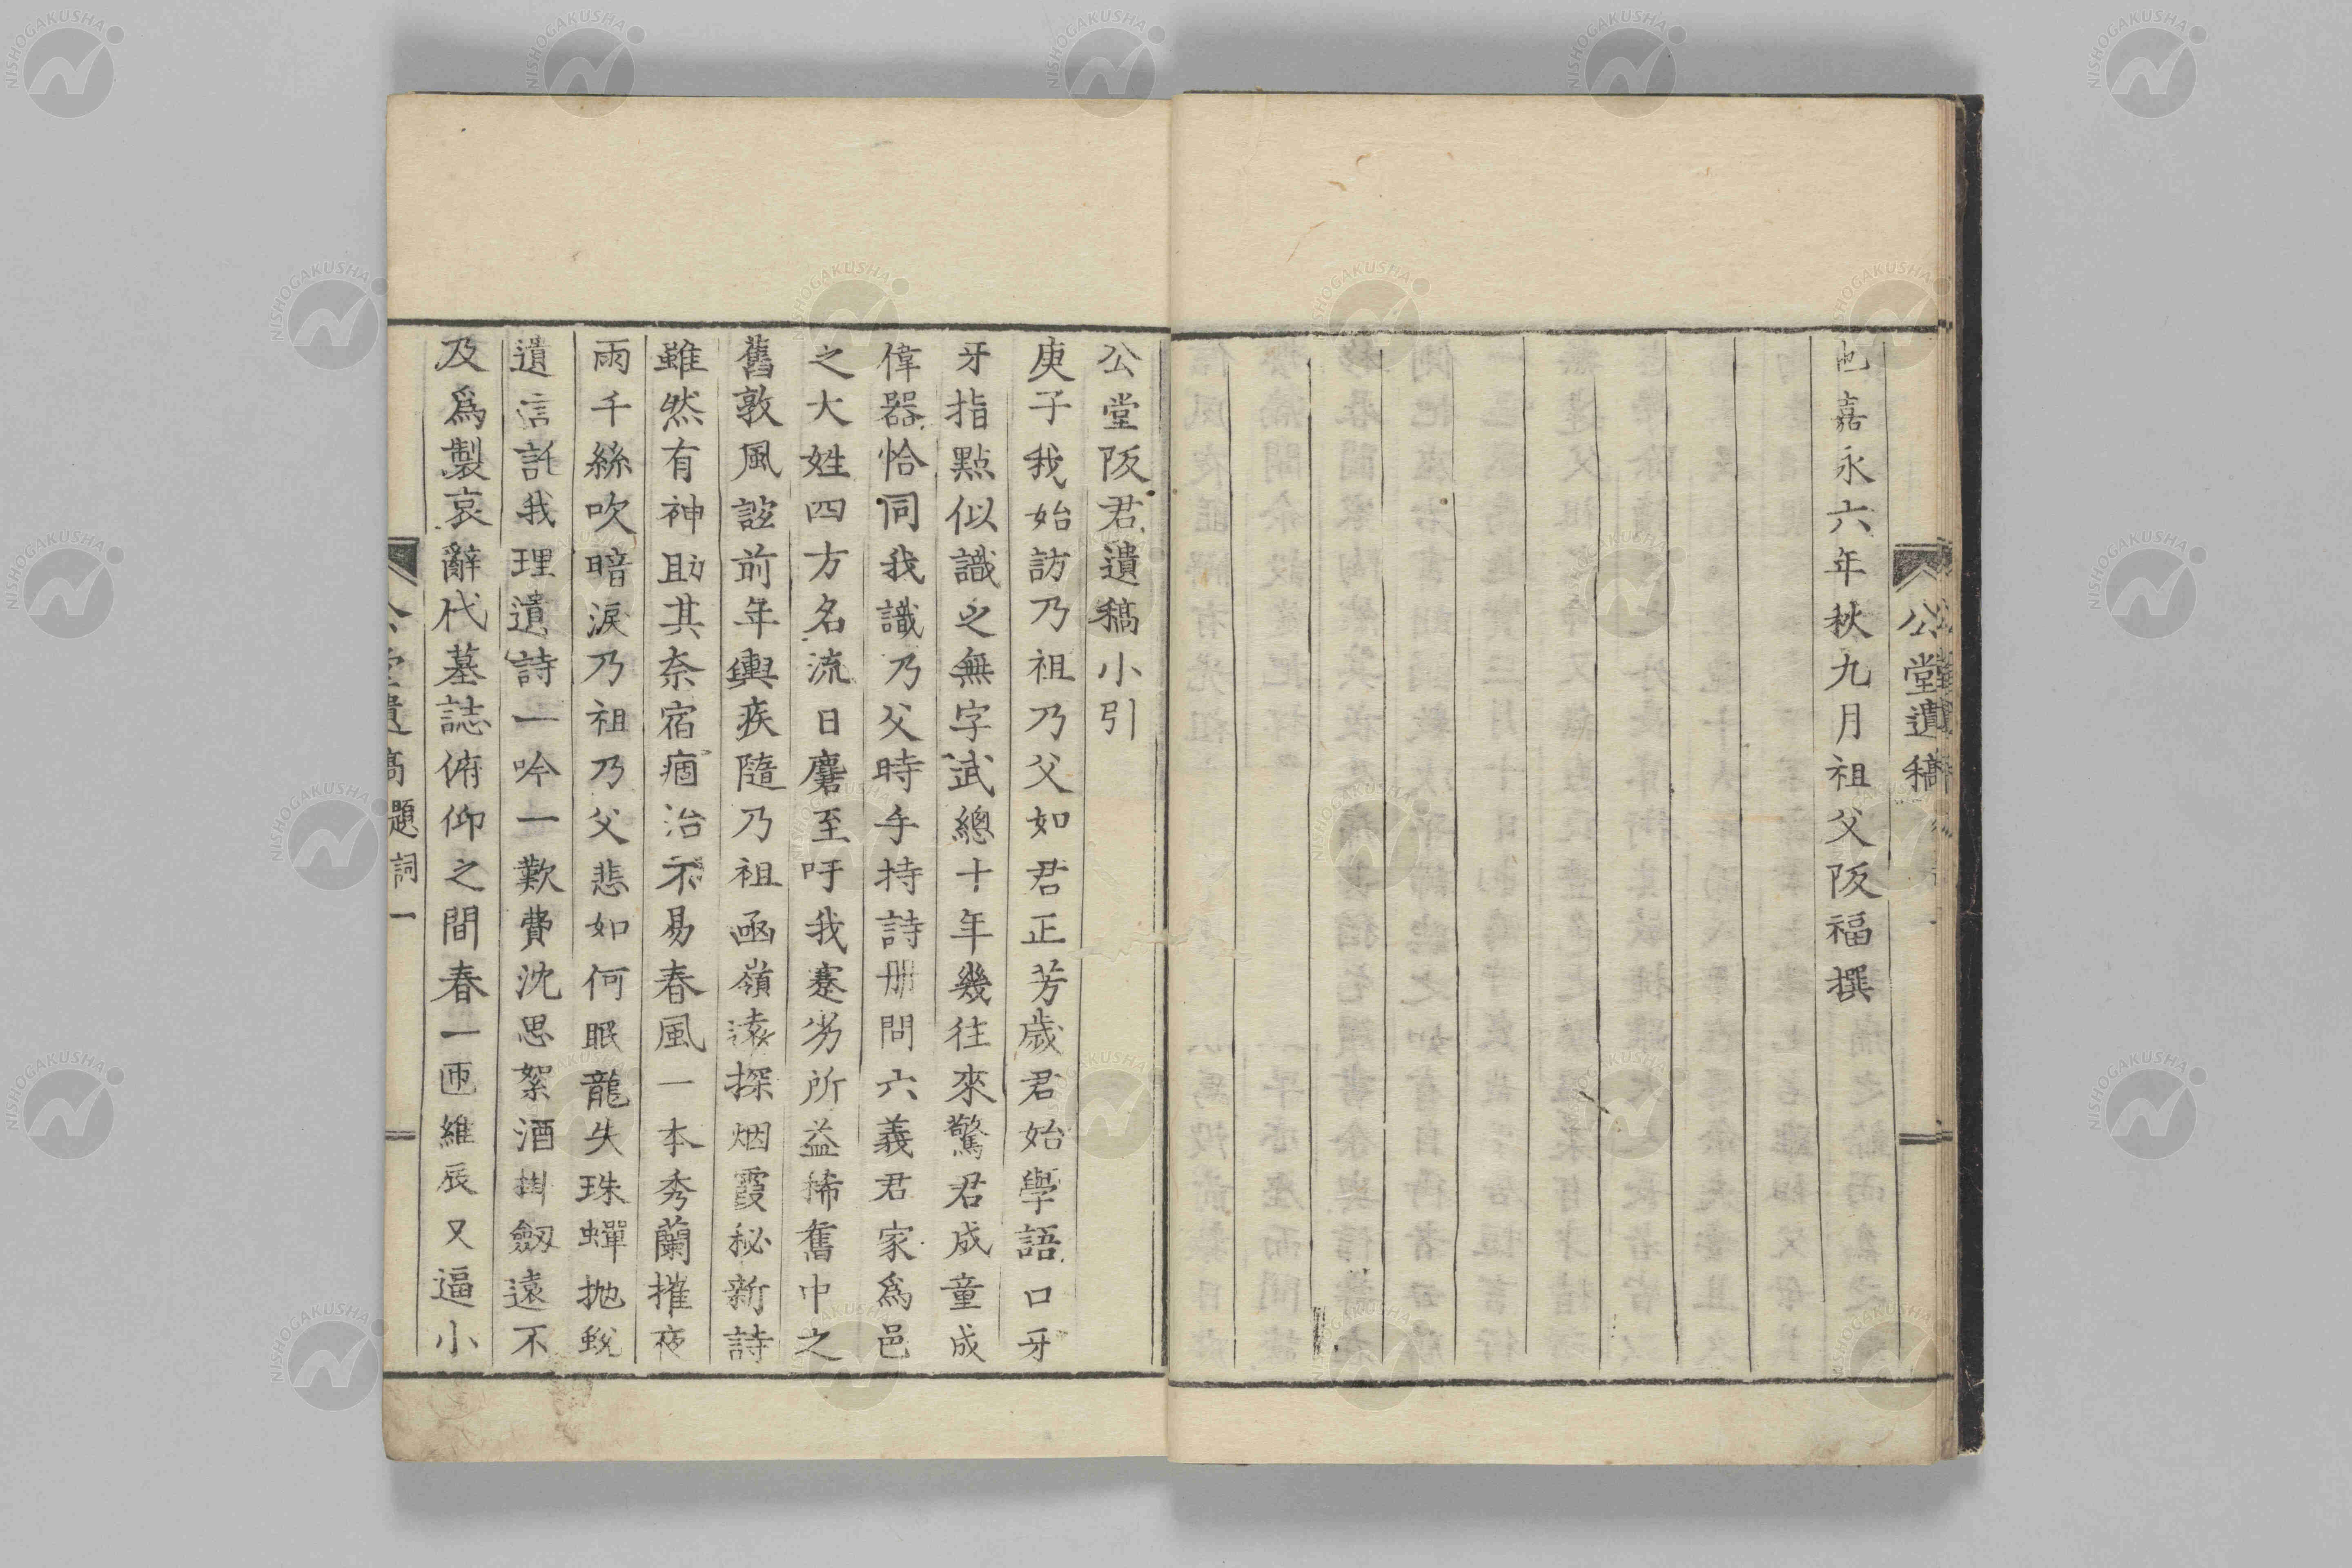 公堂遺稿
也嘉永六年秋九月祖父阪福撰
公堂阪君遺稿小引
庚子我始訪乃祖乃父如君正芳歳君始學語口牙
牙指點似識之無字試總十年幾往來驚君成童成
偉器恰同我識乃父時手持詩册問六義君家爲邑
之大姓四方名流日麕至吁我蹇劣所益稀奮中之
舊敦風誼前年輿疾隨乃祖函嶺遠探烟霞秘新詩
雖然有神助其奈宿痼治不易春風一本秀蘭摧夜
雨千絲吹暗淚乃祖乃父悲如何眠龍失珠蟬抛蛻
遺信託我理遺詩一吟一歎費沈思絮酒掛劔遠不
及爲製哀辭代墓誌俯仰之間春一匝維辰又逼小
公堂遺稿 題詞 一
NISHOGAKUSHA